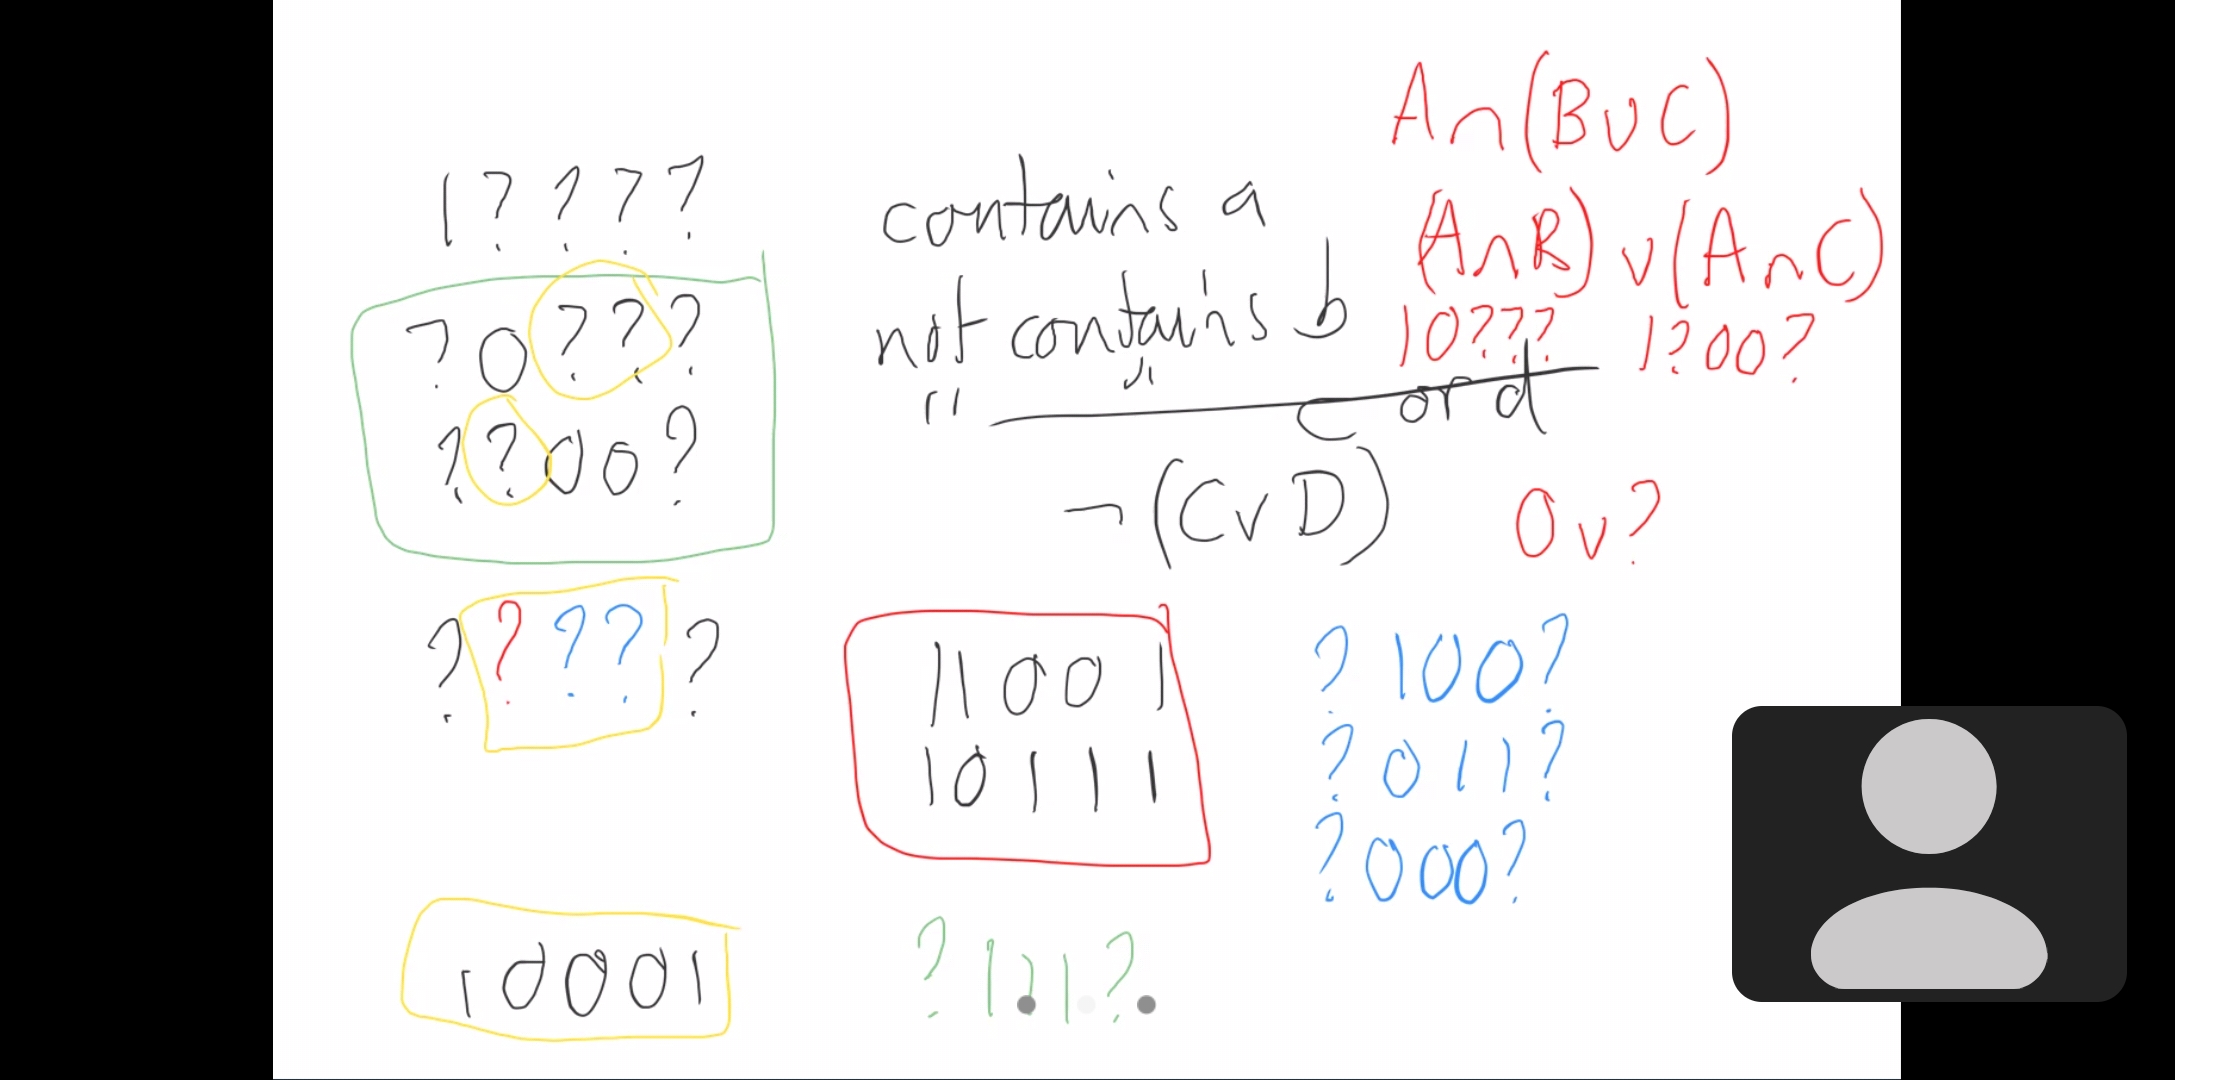 1????
?0???
??00?
?????
10001
contains a
not contains b
" " c or d
¬(CvD)
11001
10111
?111?
A∩(B∪C)
(A∩B)v(A∩C)
10??? 1?00?
0v?
?100?
?011?
?000?